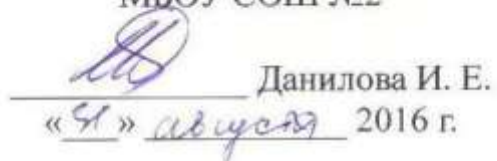 МБОУ СОШ №2
Данилова И. Е.
«31» августа 2016 г.